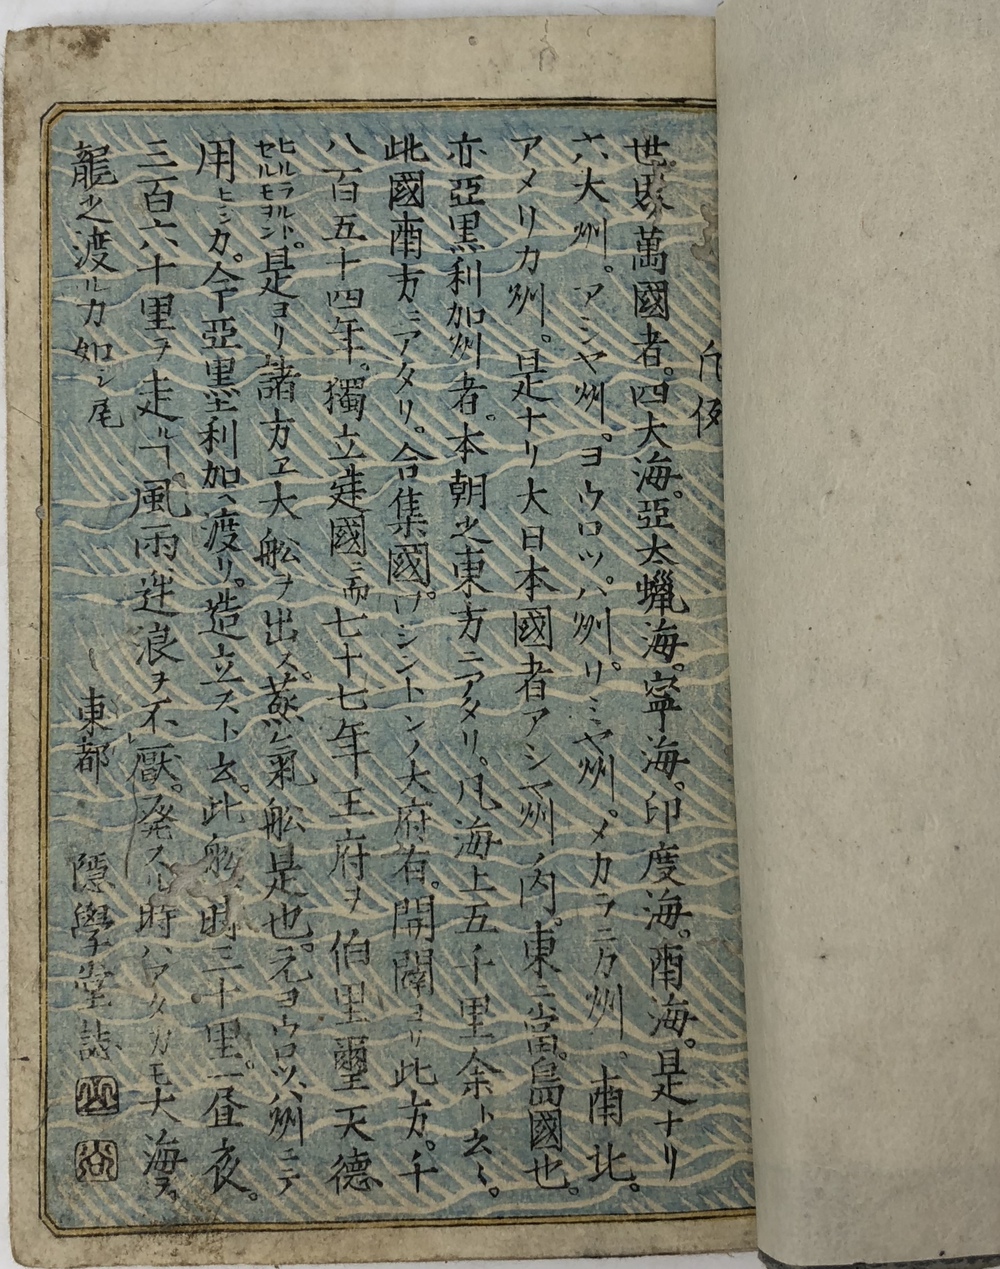 凡例
世界萬國者。四大海。亞太蠟海。寧海。印度海。南海。是ナリ
六大州。アシヤ州。ヨウロツパ州。リミヤ州。メカラニカ州。南北。
アメリカ州。是ナリ大日本國者アシヤ州内。東ニ當。島國也。
亦亞黒利加州者。本朝之東方ニアタリ。凡海上五千里余ト云々。
此國南方ニアタリ。合集國。ワシントンノ大府有。開闢ヨリ此方。千
八百五十四年。獨立建國ニ而七十七年王府ヲ伯里璽天德
ヒルラルト。セルモヨント。是ヨリ諸方ヱ大舩ヲ出ス。蒸気舩是也。元ヨウロツパ州ニテ
用ヒシカ。今下亞黒利加ヘ渡リ。造立スト云。此舩時三十里。一昼夜。
三百六十里ヲ走ルヿ。風雨逆浪ヲ不厭。発スル時ハアタカモ大海ヲ。
龍之渡ルカ如シ尾
東都 隠學堂誌